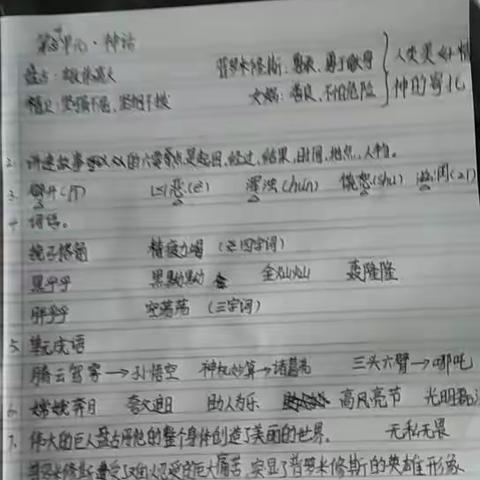 第5单元·神话
盘古：勤劳、
普罗米修斯：勇敢、勇于献身
人类美好精
精卫：坚强不屈、坚韧不拔
女娲：善良、不怕危险
神的寄托
2. 讲述故事的六要素是起因、经过、结果、时间、地点、人物。
3. 劈开(pī) 凶恶(è) 浑浊(hún) 饶恕(shù) 滋润(zī)
4. 词语。
精疲力竭 (四字词)
黑乎乎 黑黝黝 金灿灿 轰隆隆
胖乎乎 空荡荡 (三字词)
5. 单元成语
腾云驾雾→孙悟空 神机妙算→诸葛亮 三头六臂→哪吒
6. 嫦娥奔月 夸父追日 助人为乐 高风亮节 光明磊
7. 伟大的巨人盘古用他的整个身体创造了美丽的世界。 无私无畏
普罗米修斯遭受双重 的巨大痛苦，突显了普罗米修斯的英雄形象